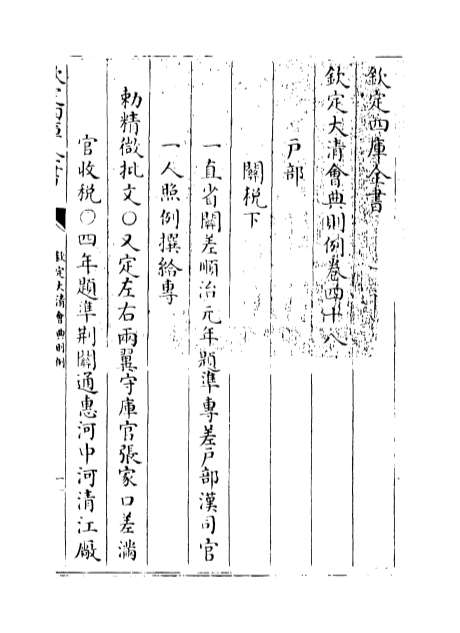 欽定四庫全書
欽定大清會典則例卷四十八
戶部
關稅下
一直省關差順治元年題準專差戶部漢司官
一人照例撰給專
勅精微批文○又定左右兩翼守庫官張家口差滿
官收稅○四年題準荆關通惠河中河清江廠
欽定大清會典則例
一